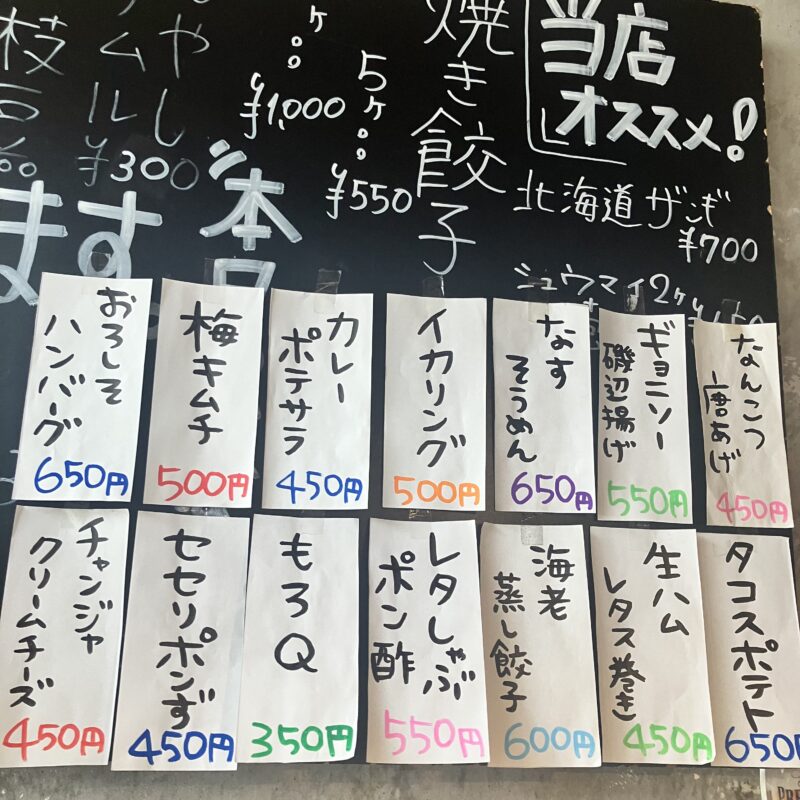 当店
オススメ!
北海道ザンギ
¥700
シュウマイ2ヶ
焼き餃子
5ヶ
¥550
ヶ
¥1,000
や
し
ム
ル
¥300
枝
豆
ます。
本日
なんこつ
唐あげ
450円
ギョニソー
磯辺揚げ
550円
なす
そうめん
650円
イカリング
500円
カレー
ポテサラ
450円
梅キムチ
500円
おろしそ
ハンバーグ
650円
タコスポテト
650
生ハム
レタス巻き
450円
海老
蒸し餃子
600円
レタしゃぶ
ポン酢
550円
もろQ
350円
セセリポンず
450円
チャンジャ
クリームチーズ
450円